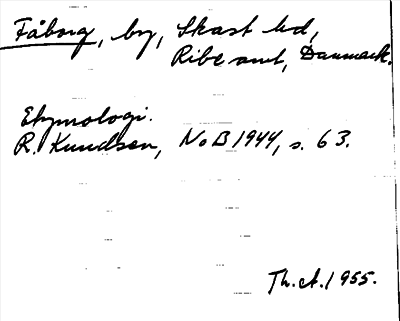 Fåborg, by, Skast hd,
Ribe amt, Danmark.
Etymologi.
R. Knudsen, NoB 1944, s. 63.
Th. A. 1955.